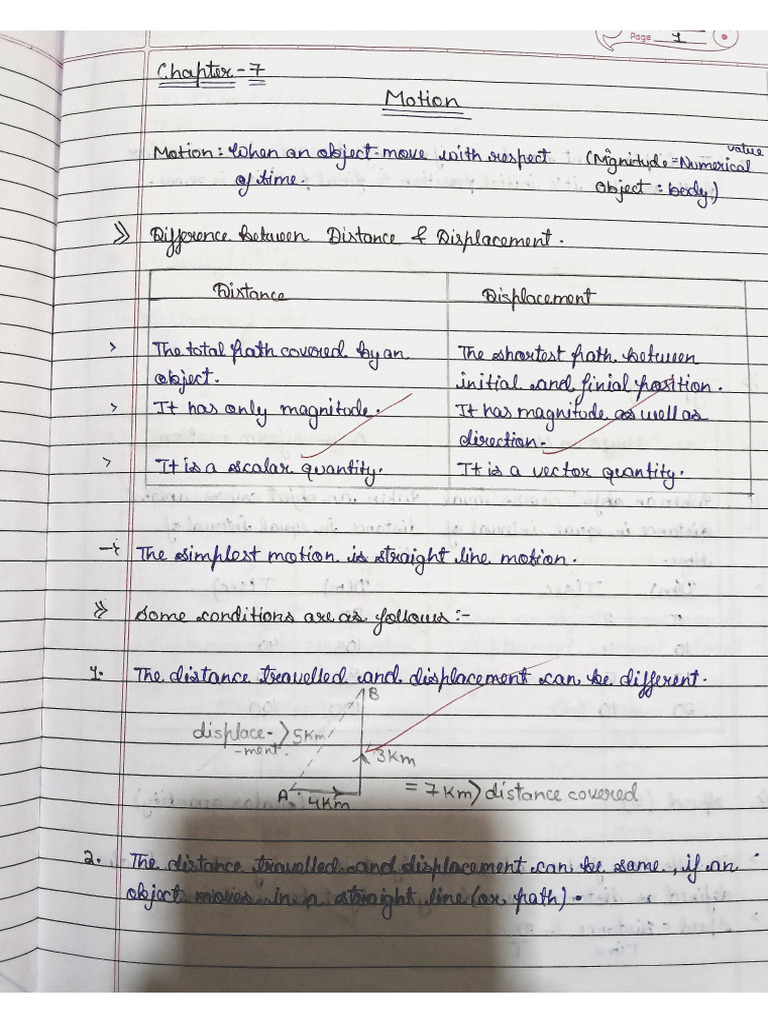 Page 1
Chapter - 7
Motion
Motion : When an object move with respect (Mgnitude = Numerical value
of time. Object : body)
Difference between Distance & Displacement.
Distance Displacement
> The total path covered by an The shortest path between
object. initial and finial position.
> It has only magnitude. It has magnitude as well as
direction.
> It is a scalar quantity. It is a vector quantity.
The simplest motion is straight line motion.
Some conditions are as follows :-
1. The distance travelled and displacement can be different.
B
displace- > 5km
-ment.
3km
A 4km = 7km > distance covered
2. The distance travelled and displacement can be same, if an
object moves in a straight line (or path).